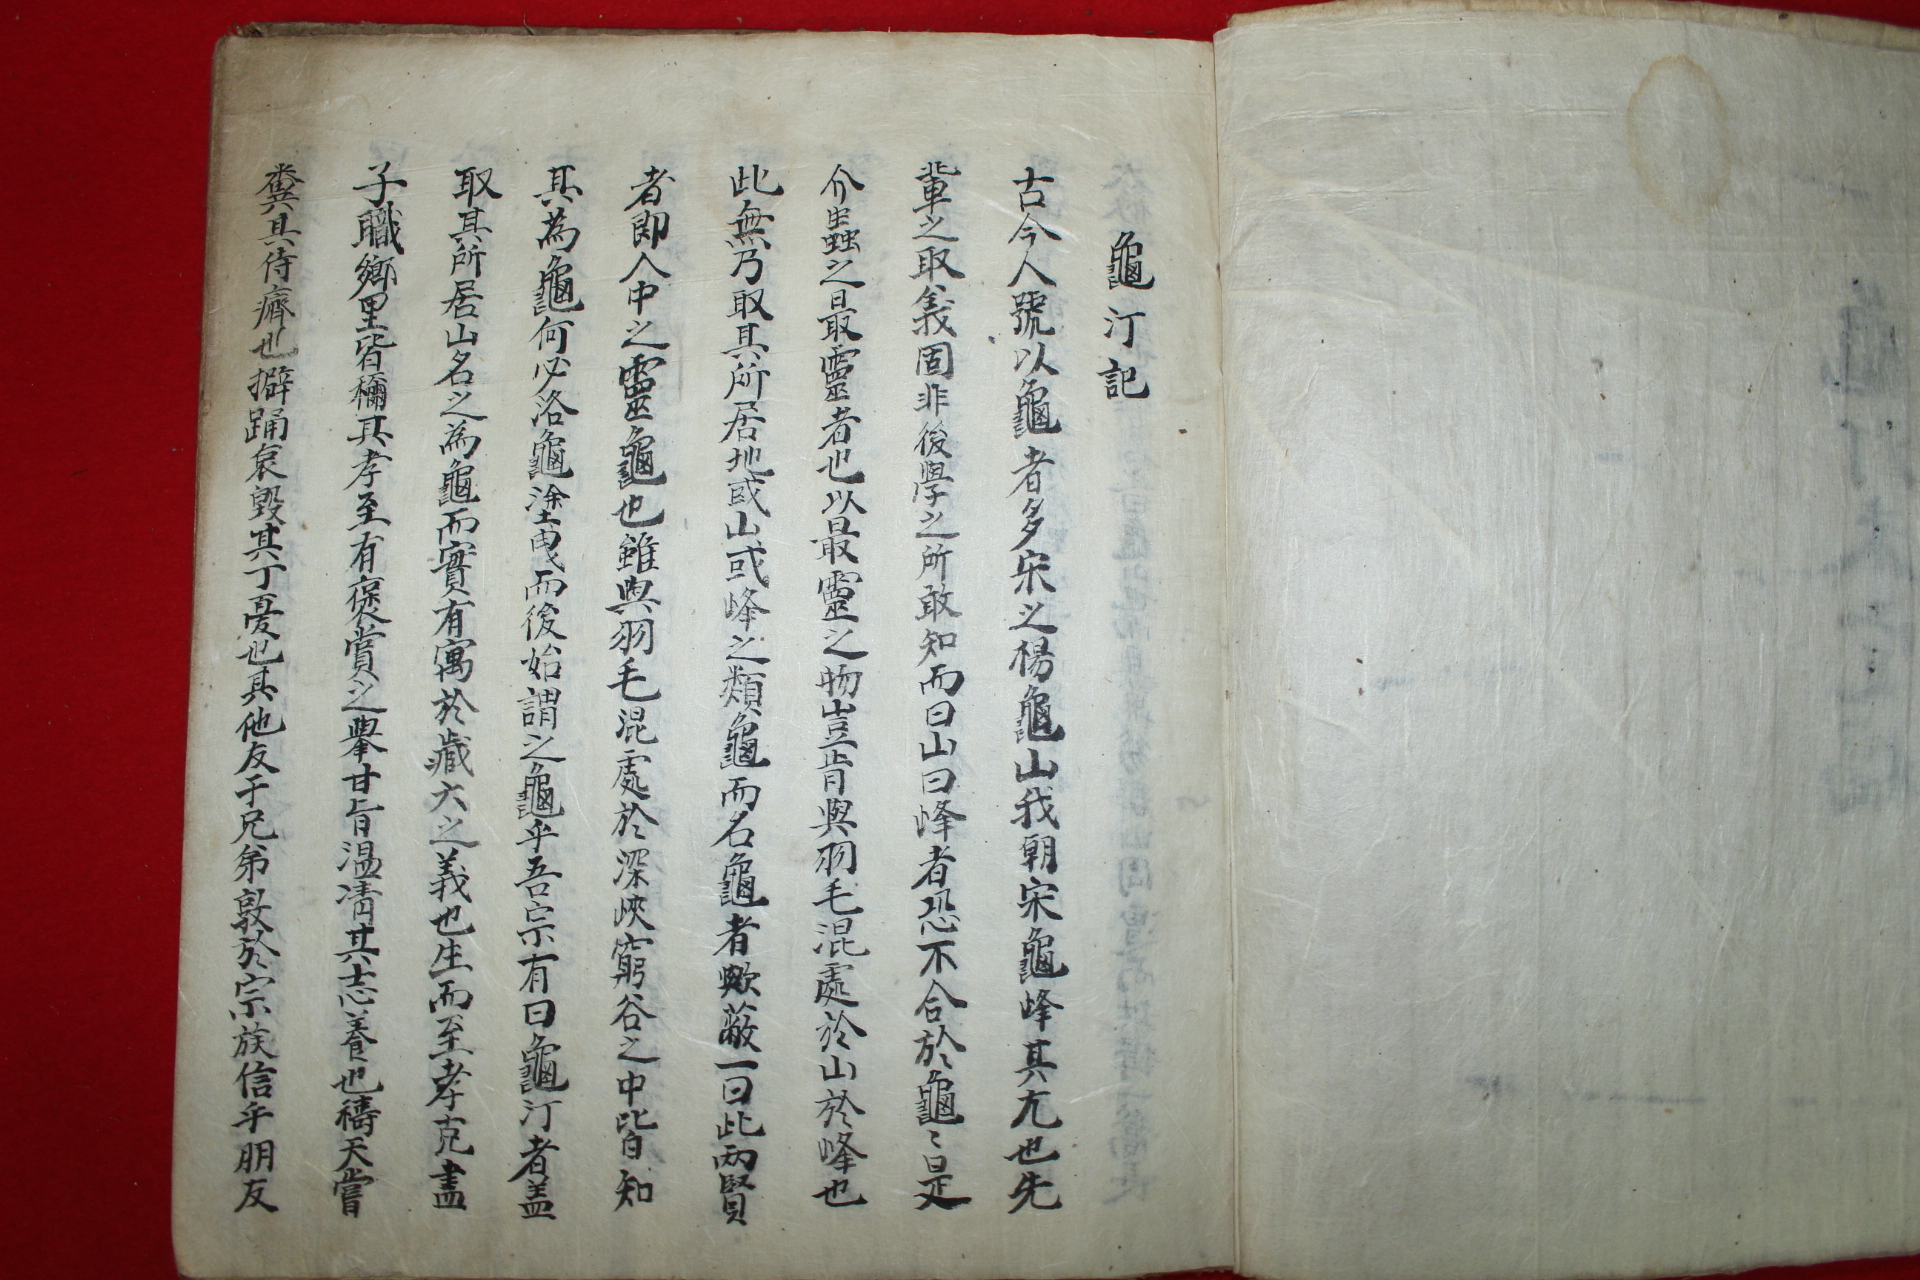 龜汀記
古今人號以龜者多宋之楊龜山我朝宋龜峰其尤也先
輩之取義固非後學之所敢知而曰山曰峰者恐不合於龜〻是
介蟲之最靈者也以最靈之物豈肯與羽毛混處於山於峰也
此無乃取其所居地或山或峰之類龜而名龜者歟蔽一曰此兩賢
者即人中之靈龜也雖與羽毛混處於深峽窮谷之中皆知
其為龜何必洛龜塗曳而後始謂之龜乎吾宗有曰龜汀者盖
取其所居山名之為龜而實有寓於藏六之義也生而至孝克盡
子職鄉里皆稱其孝至有褒賞之擧甘旨溫凊其志養也禱天嘗
糞其侍癠也擗踊哀毁其丁憂也其他友于兄弟敦於宗族信乎朋友